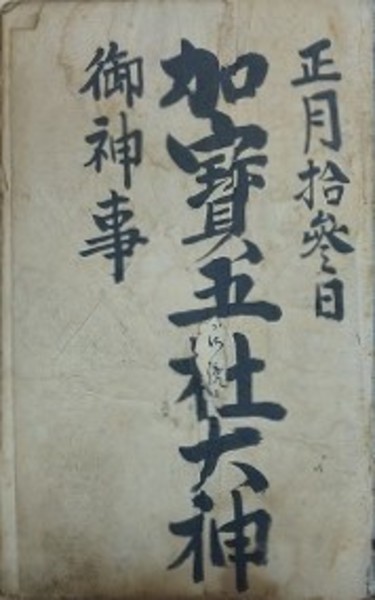 正月拾參日
加寳五社大神
御神事